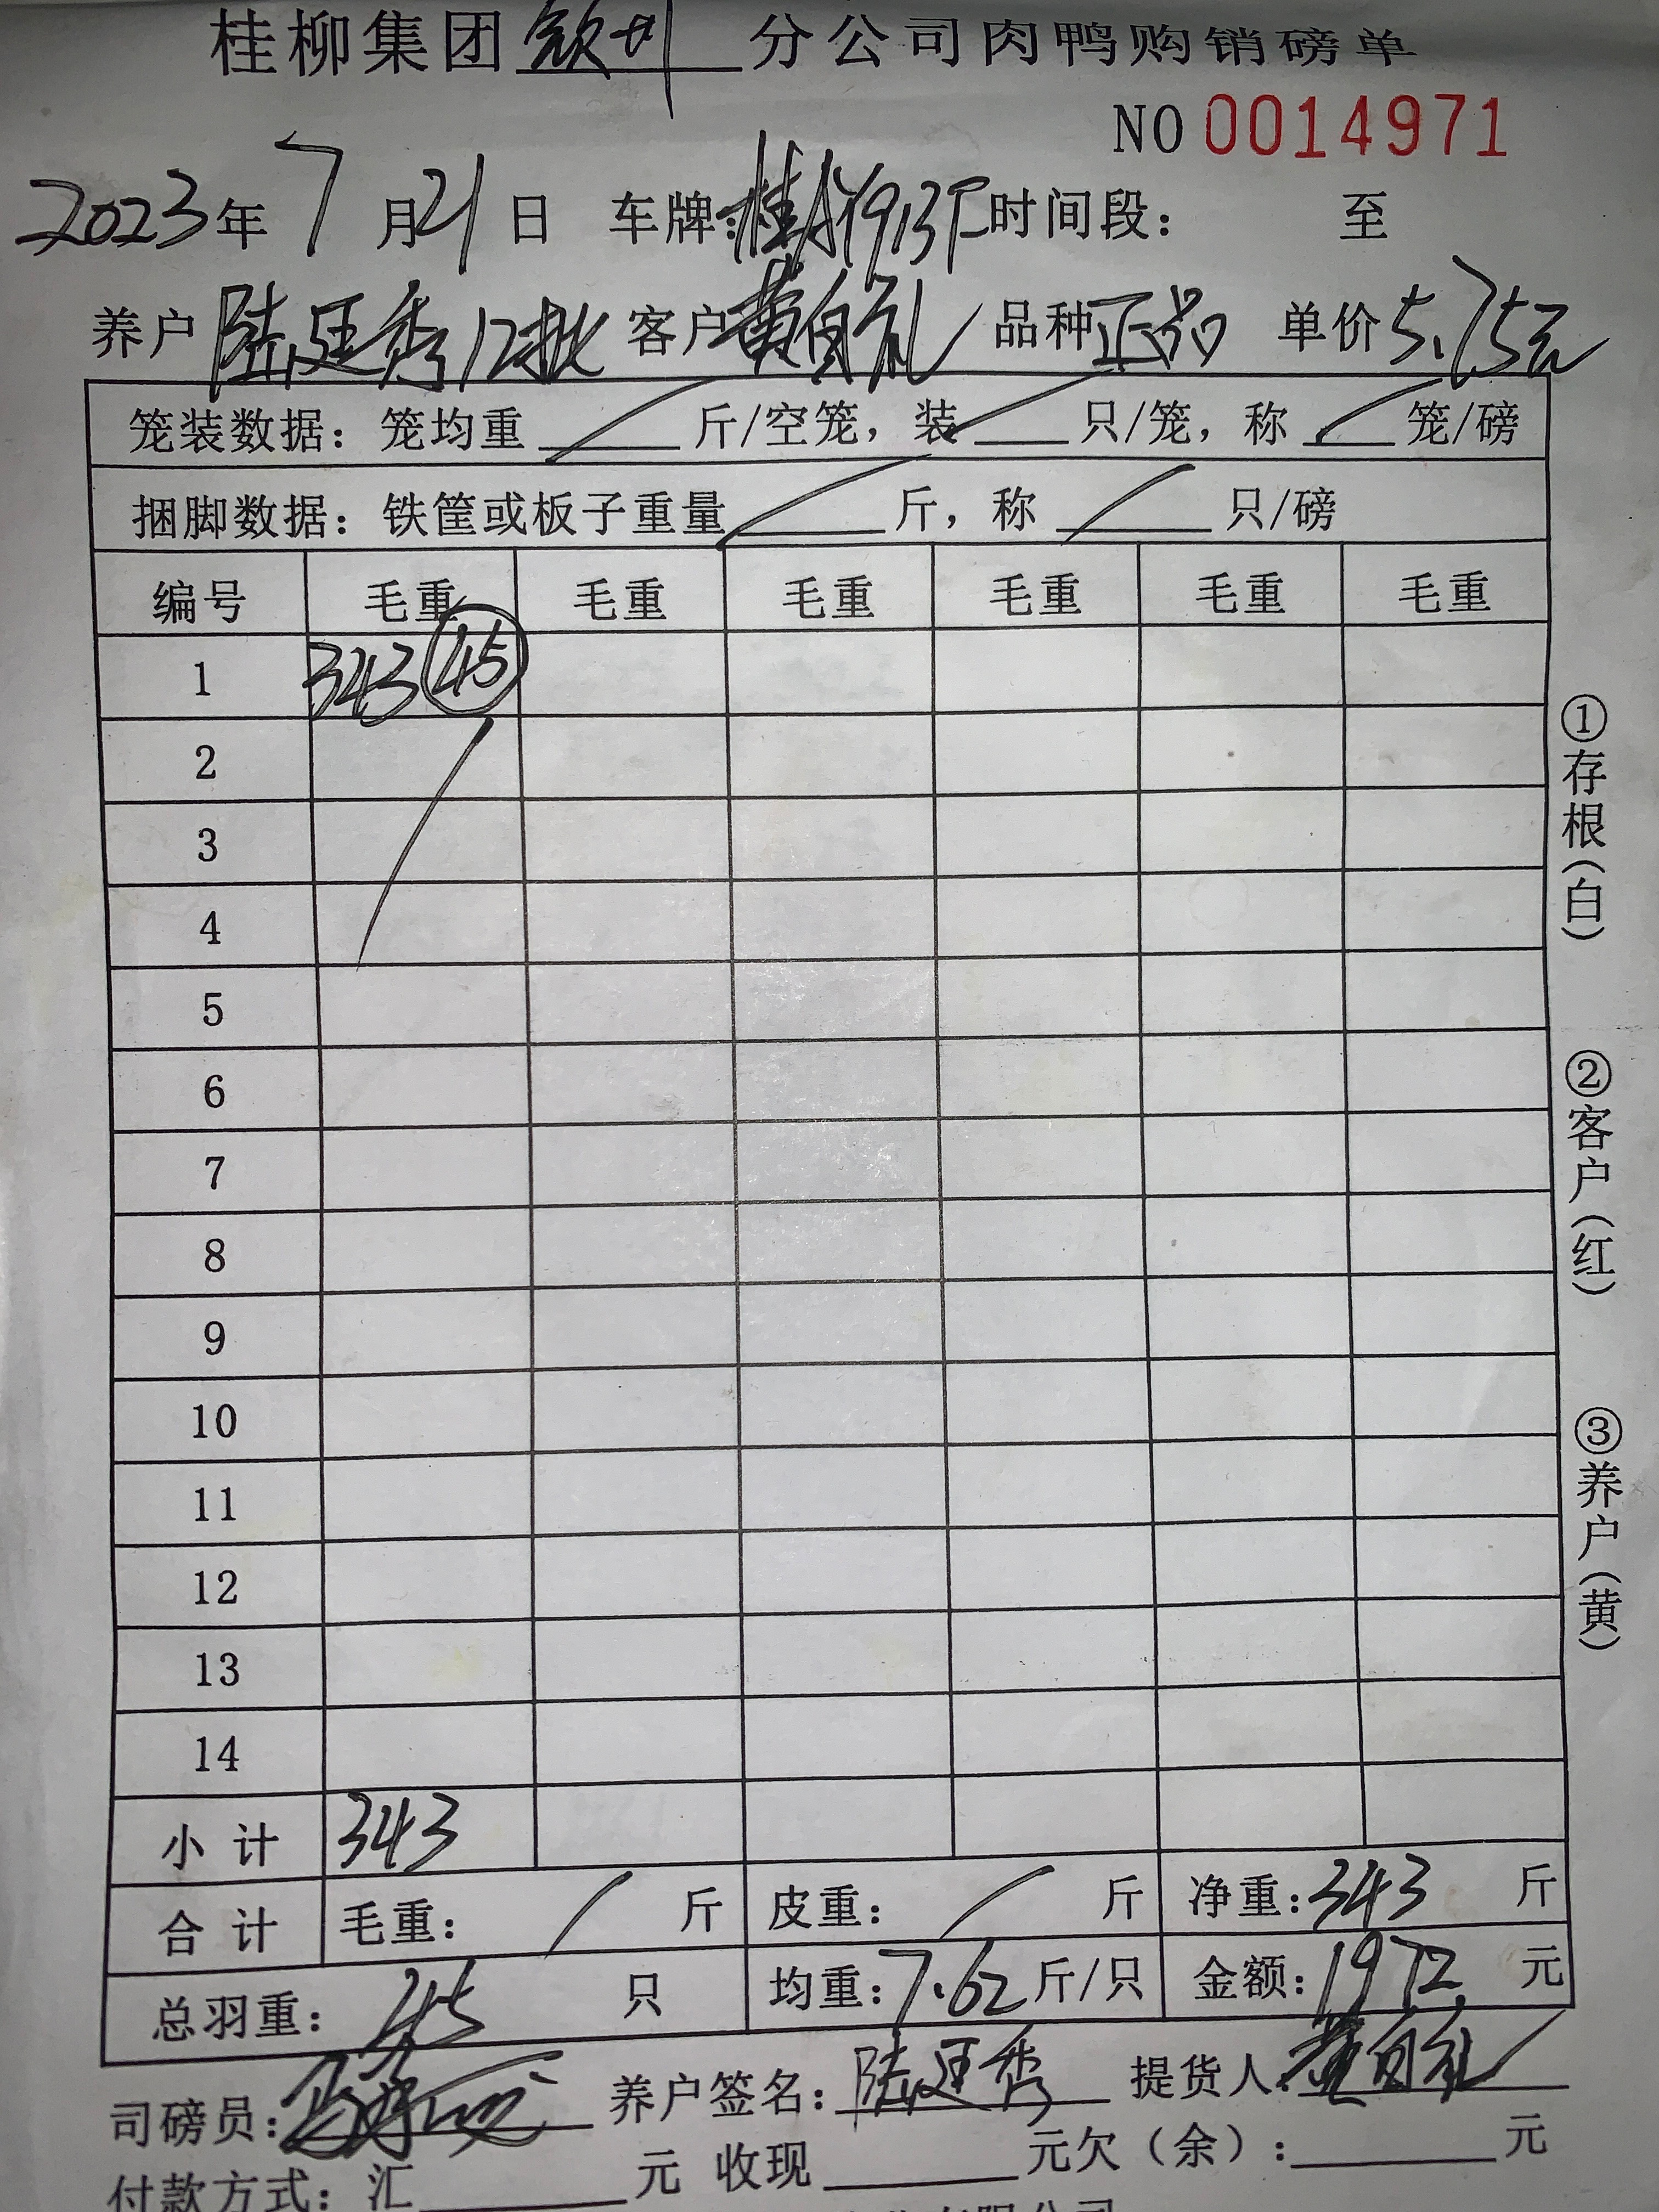 桂柳集团钦州分公司肉鸭购销磅单
NO 0014971
2023年 7 月21 日 车牌: 时间段: 至
养户 陆廷秀12批 客户 黄自礼 品种 正品 单价 5.75元
笼装数据: 笼均重 / 斤/空笼, 装 / 只/笼, 称 / 笼/磅
捆脚数据: 铁筐或板子重量 / 斤, 称 / 只/磅
编号 毛重 毛重 毛重 毛重 毛重 毛重
1 343 45
2
3
4
5
6
7
8
9
10
11
12
13
14
小计 343
合计 毛重: / 斤 皮重: / 斤 净重: 343 斤
总羽重: 45 只 均重: 7.62 斤/只 金额: 1972 元
司磅员: 养户签名: 陆廷秀 提货人: 黄自礼
付款方式: 汇 元 收现 元 欠(余): 元
①存根(白)
②客户(红)
③养户(黄)